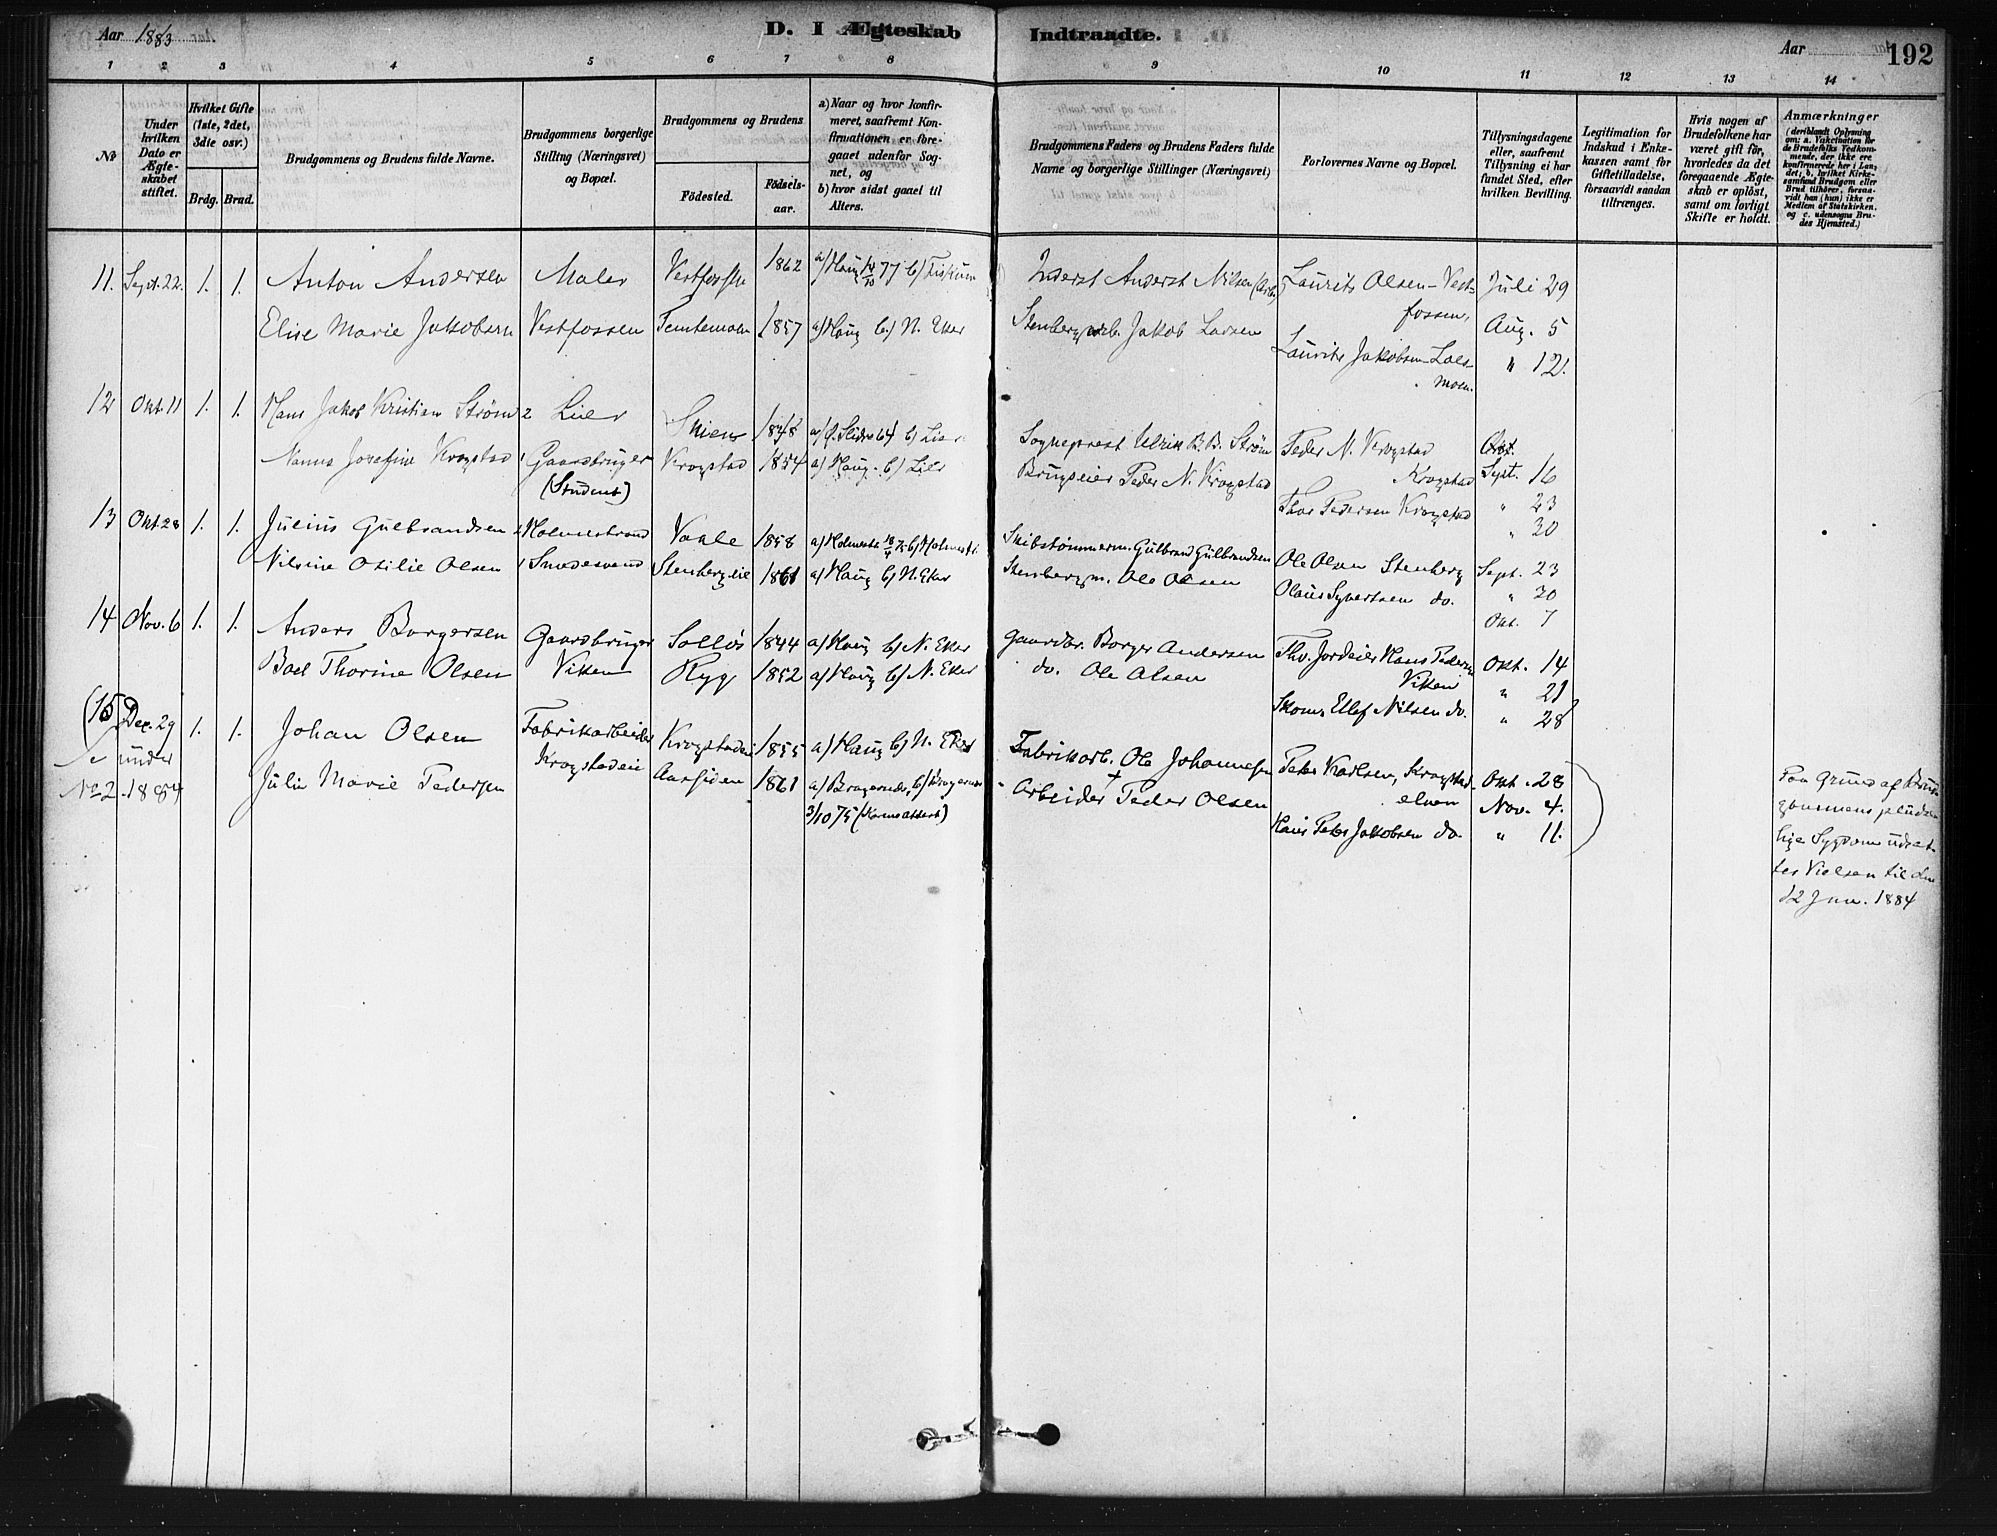 Aar 1883
D. I Ægteskab Indtraadte.
Aar 192
1 2 3 4 5 6 7 8 9 10 11 12 13 14
No
Under hvilken Dato er Ægteskabet stiftet.
Hvilket Gifte (1ste, 2det, 3die osv.)
Brdg. Brud.
Brudgommens og Brudens fulde Navne.
Brudgommens borgerlige Stilling (Næringsvei) og Bopæl.
Brudgommens og Brudens
Födested.
Födselsaar.
a) Naar og hvor konfirmeret, saafremt Konfirmationen er foregaaet udenfor Sognet, og
b) hvor sidst gaaet til Alters.
Brudgommens Faders og Brudens Faders fulde Navne og borgerlige Stillinger (Næringsvei)
Forlovernes Navne og Bopæl.
Tillysningsdagene eller, saafremt Tillysning ei har fundet Sted, efter hvilken Bevilling.
Legitimation for Indskud i Enkekassen samt for Giftetilladelse, forsaavidt saadan tiltrænges.
Hvis nogen af Brudefolkene har været gift för, hvorledes da det foregaaende Ægteskab er oplöst, samt om lovligt Skifte er holdt.
Anmærkninger
(deriblandt Oplysning om: a. Vakcination for de Brudefolks Vedkommende, der ikke ere konfirmerede her i Landet, b. hvilket Kirkesamfund Brudgom eller Brud tilhörer, forsaavidt han (hun) ikke er Medlem af Statskirken, og c. udensogns Brudes Hjemsted.)
11. Sept. 22. 1. 1. Anton Andersen Maler Vestfossen 1862 a) Haug 77 b) Fiskum Inderst Anderst Nilsen Laurits Olsen Vestfossen, Juli 29
Elise Marie Jakobsen Vestfossen 1857 a) Haug b) N. Eker Stenberg Jakob Larsen Aug. 5
Laurits Jakobsen " 12.
12 Okt. 11 1. 1. Hans Jakob Kristian Strøm 2 Lier Skien 1848 a) Ø. Slidre 64 b) Lier Sogneprest Ulrik B. B. Strøm Peder N. Krogstad
Nanna Josefine Krogstad Gaardbruger Krogstad 1854 a) Haug. b) Lier Brugseier Peder N. Krogstad Krogstad Sept. 16
(Student) Thor Pedersen Krogstad " 23
" 30
13 Okt. 28 1. 1. Julius Gulbrandsen Holmestrand Vaale 1858 a) Holmestr. 75 b) Holmestr. Skibstømmerm. Gulbrand Gulbrandsen Ole Olsen Stenberg Sept. 23
Nilsine Otilie Olsen Smedesvend Stenbergeie 1861 a) Haug b) N. Eker Stenbergm. Ole Olsen Olaus Syvertsen do. " 30
Okt. 7
14 Nov. 6 1. 1. Anders Borgersen Gaardbruger Solløs 1844 a) Haug b) N. Eker Gaardbr. Borger Andersen Thv. Jordeier Hans Pedersen Viken Okt. 14
Boel Thorine Olsen Viken Ryg 1852 a) Haug b) N. Eker do. Ole Olsen " 21
Skom. Ellef Nilsen do. " 28
(15 Dec. 29 1. 1. Johan Olsen Fabrikarbeider Krogstadeie 1855 a) Haug b) N. Eker Fabrikarb. Ole Johannesen Peter Karlsen, Krogstadelven Okt. 28
Se under No 2 1884 Julie Marie Pedersen Krogstadeie Aassiden 1861 a) Bragernæs, b) Bragernæs 3/10 75 (Konf.attest) Arbeider + Peder Olsen Nov. 4.
Hans Peter Jakobsen do. " 11.
Paa Grund af Brudgommens pludselige Sygdom udsættes Vielsen til den 12 Jan. 1884